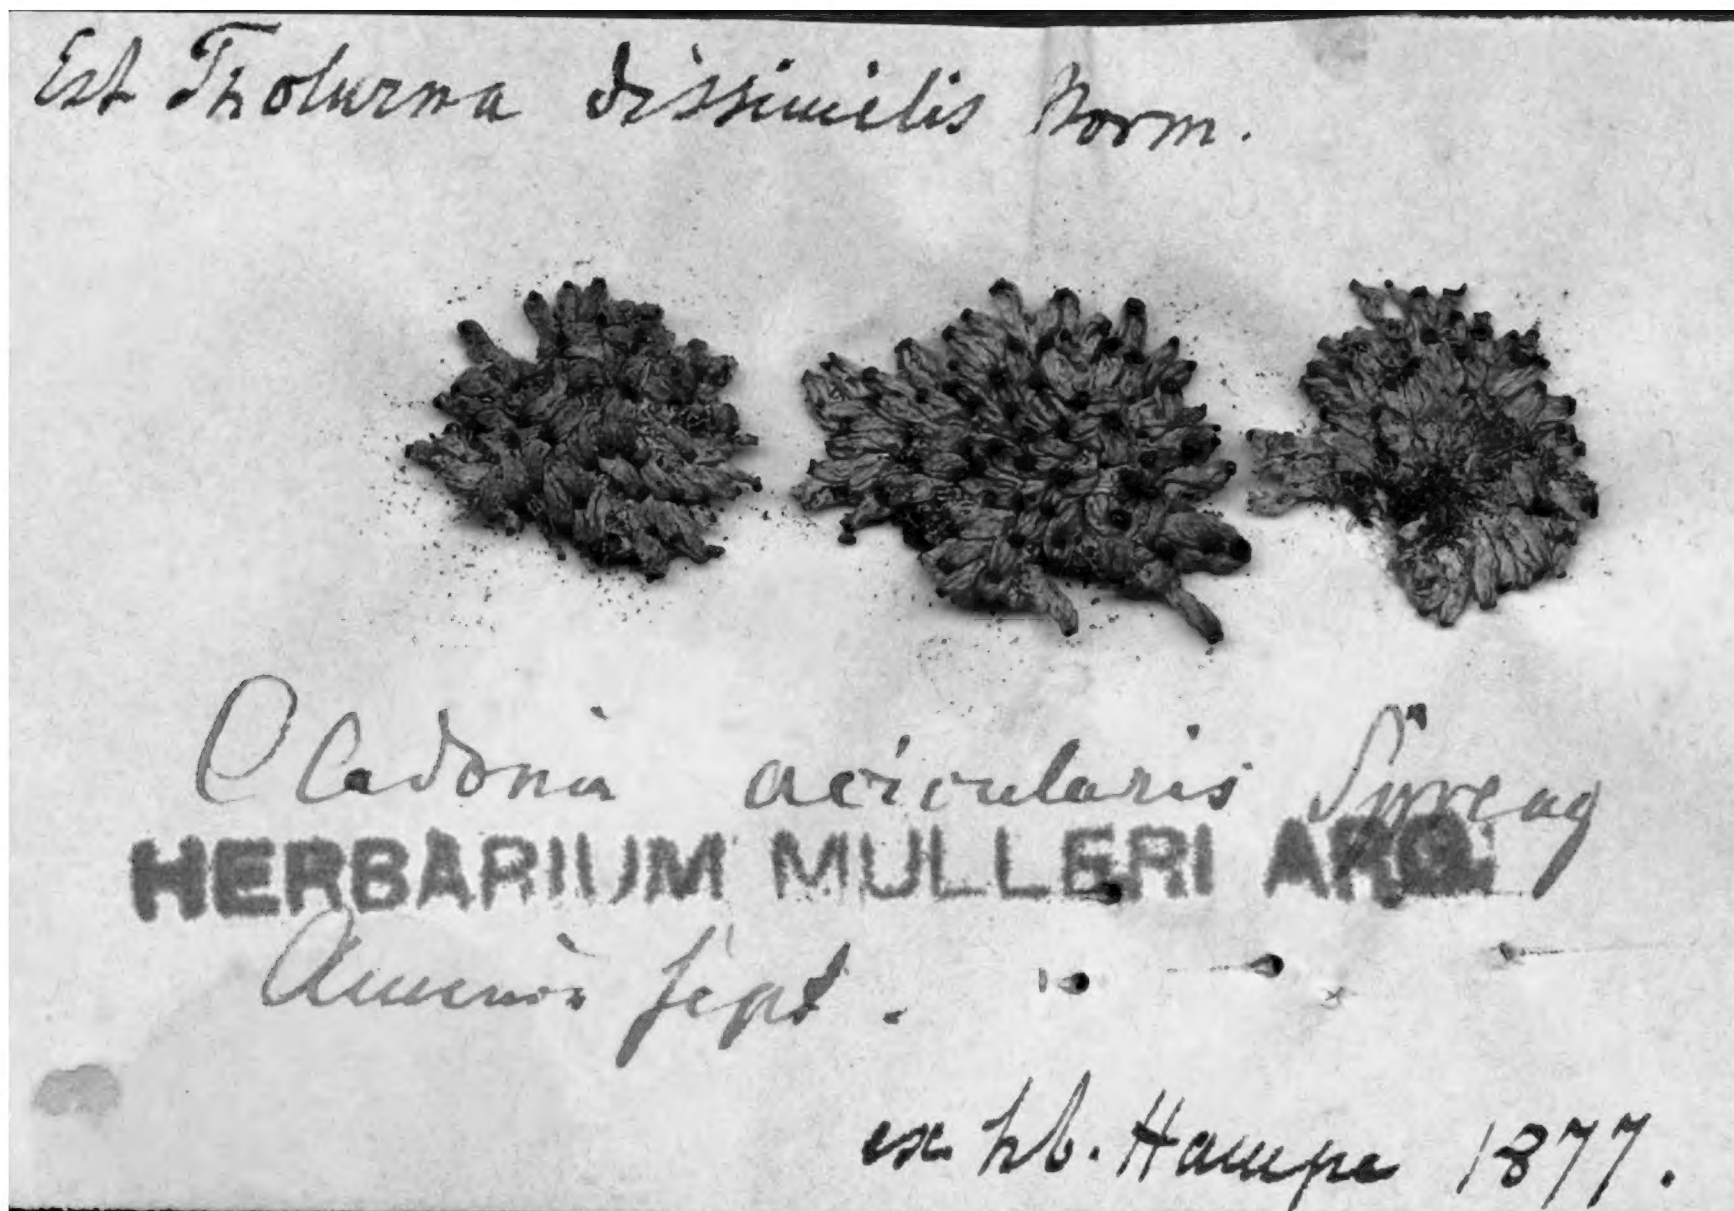 Est Tholurna dissimilis Norm.
Cladonia acicularis Spreng
HERBARIUM MULLERI ARG.
sept.
ex hb. Hampe 1877.